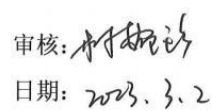 审核：
日期：2023.3.2